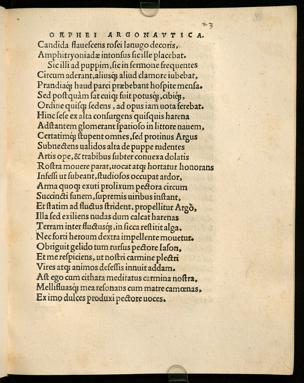 ORPHEI ARGONAVTICA.
Candida flauescens rosei lanugo decoris,
Amphitryoniadæ intonsus sic ille placebat.
Sic illi ad puppim, sic in sermone frequentes
Circum aderant, aliusq; aliud clamore iubebat,
Prandiaq; haud parci præbebant hospite mensa.
Sed postquàm sat cuiq; fuit potusq;, cibiq;,
Ordine quisq; sedens, ad opus iam uota ferebat.
Hinc sese ex alta consurgens quisquis harena
Adstantem glomerant spatioso in littore nauem,
Certatimq; stupent omnes, sed protinus Argus
Subnectens ualidos alta de puppe rudentes
Artis ope, & trabibus subter connexa dolatis
Rostra mouere parat, uocat atq; hortatur honorans
Infessi ut subeant, studiosos occupat ardor,
Arma quoq; exuti prolixum pectora circum
Succincti fanem, supremis uinbus instant,
Et statim ad fluctus strident, propellitur Argò,
Illa sed exiliens nudas dum calcat harenas
Terram inter fluctusq;, in sicca restitit alga.
Nec forti heroum dextra impellente mouetur.
Obriguit gelido tum rursus pectore Iason.
Et me respiciens, ut nostri carmine plectri
Vires atq; animos defessis innuit addam.
Ast ego cum cithara meditatus carmina nostra.
Mellifluasq; mea resonans cum matre camœnas,
Ex imo dulces produxi pectore uoces.